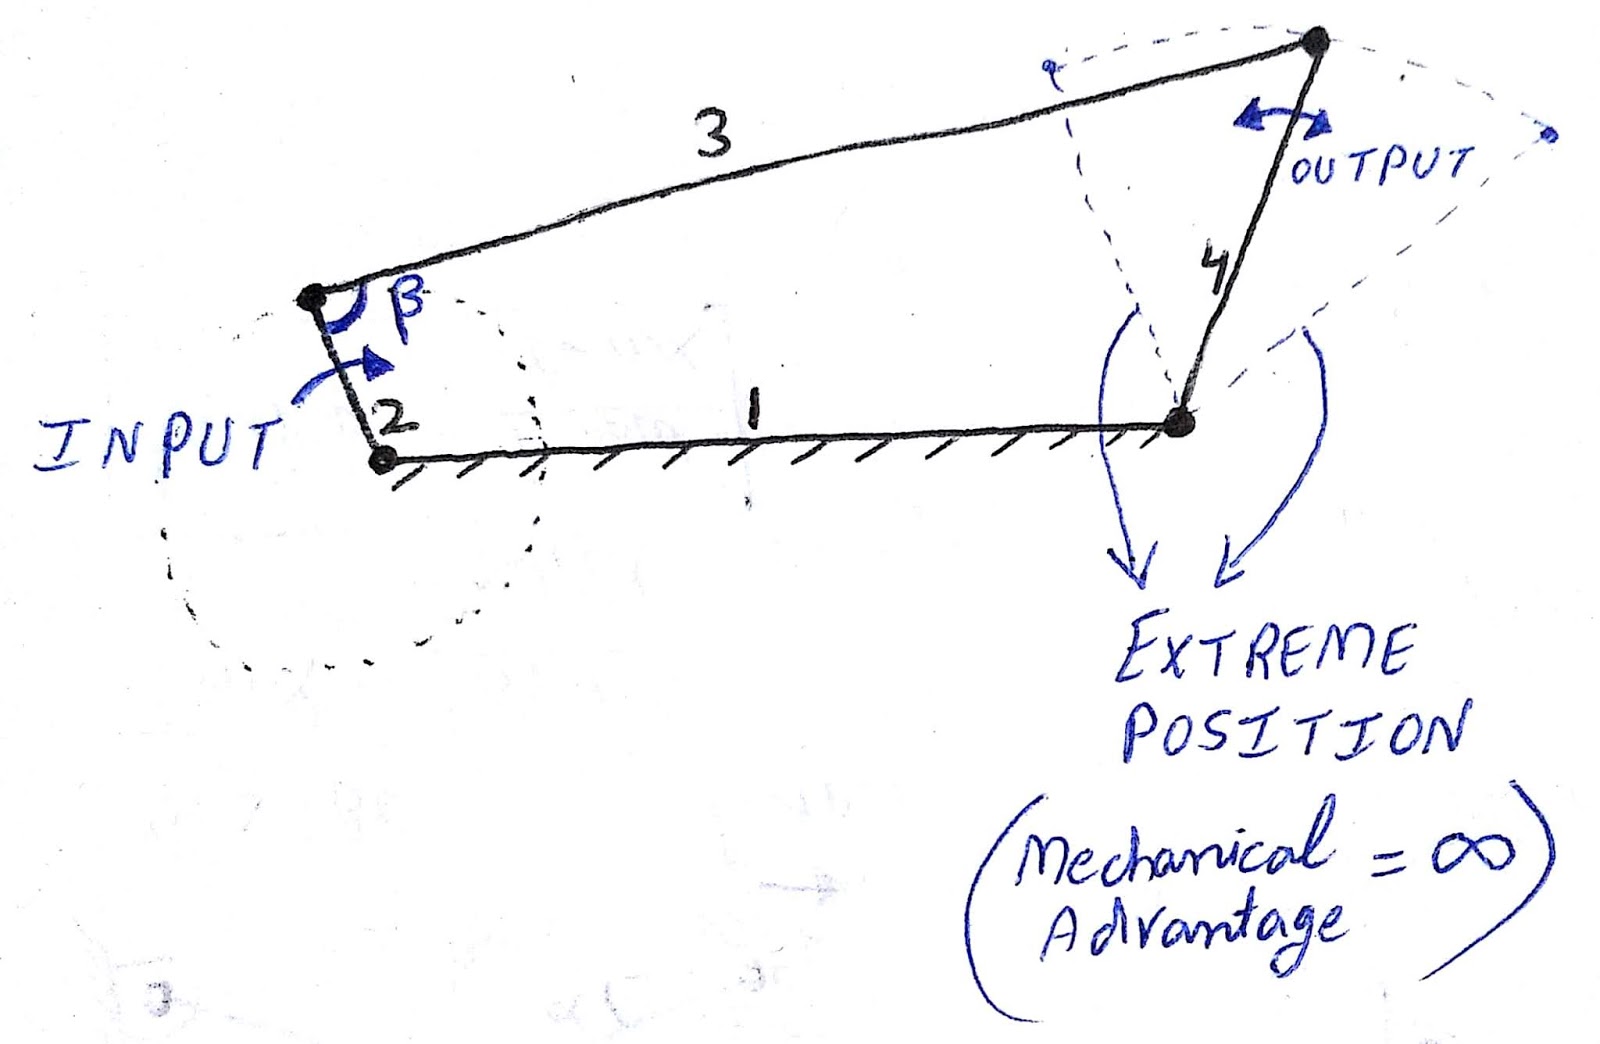 3
OUTPUT
4
β
INPUT
2
1
EXTREME
POSITION
(Mechanical = ∞)
Advantage